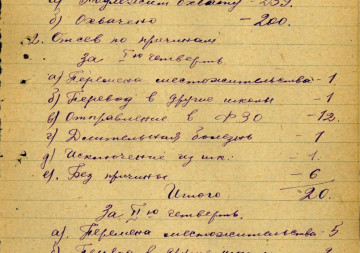 а) Подлежит охвату - 239.
б) Охвачено - 200.
2. Отсев по причинам
За I ю четверть
а) Перемена местожительства - 1
б) Перевод в другие школы - 1
в) Отправление в ФЗО - 12.
г) Длительная болезнь - 1
д) Исключение из шк. - 1.
е) Без причины - 6
Итого 20.
За II ю четверть.
а). Перемена местожительства - 5